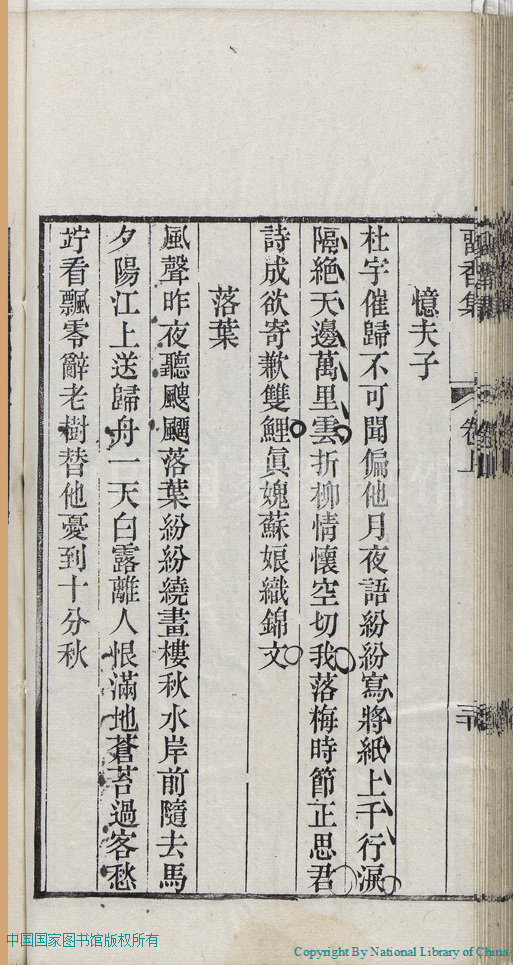 香集 卷上 三十
憶夫子
杜宇催歸不可聞偏他月夜語紛紛寫將紙上千行淚
隔絶天邊萬里雲折柳情懷空切我落梅時節正思君
詩成欲寄歉雙鯉眞媿蘇娘織錦文
落葉
風聲昨夜聽颼飀落葉紛紛繞畫樓秋水岸前隨去馬
夕陽江上送歸舟一天白露離人恨滿地蒼苔過客愁
竚看飄零辭老樹替他憂到十分秋
中国国家图书馆版权所有
Copyright By National Library of China